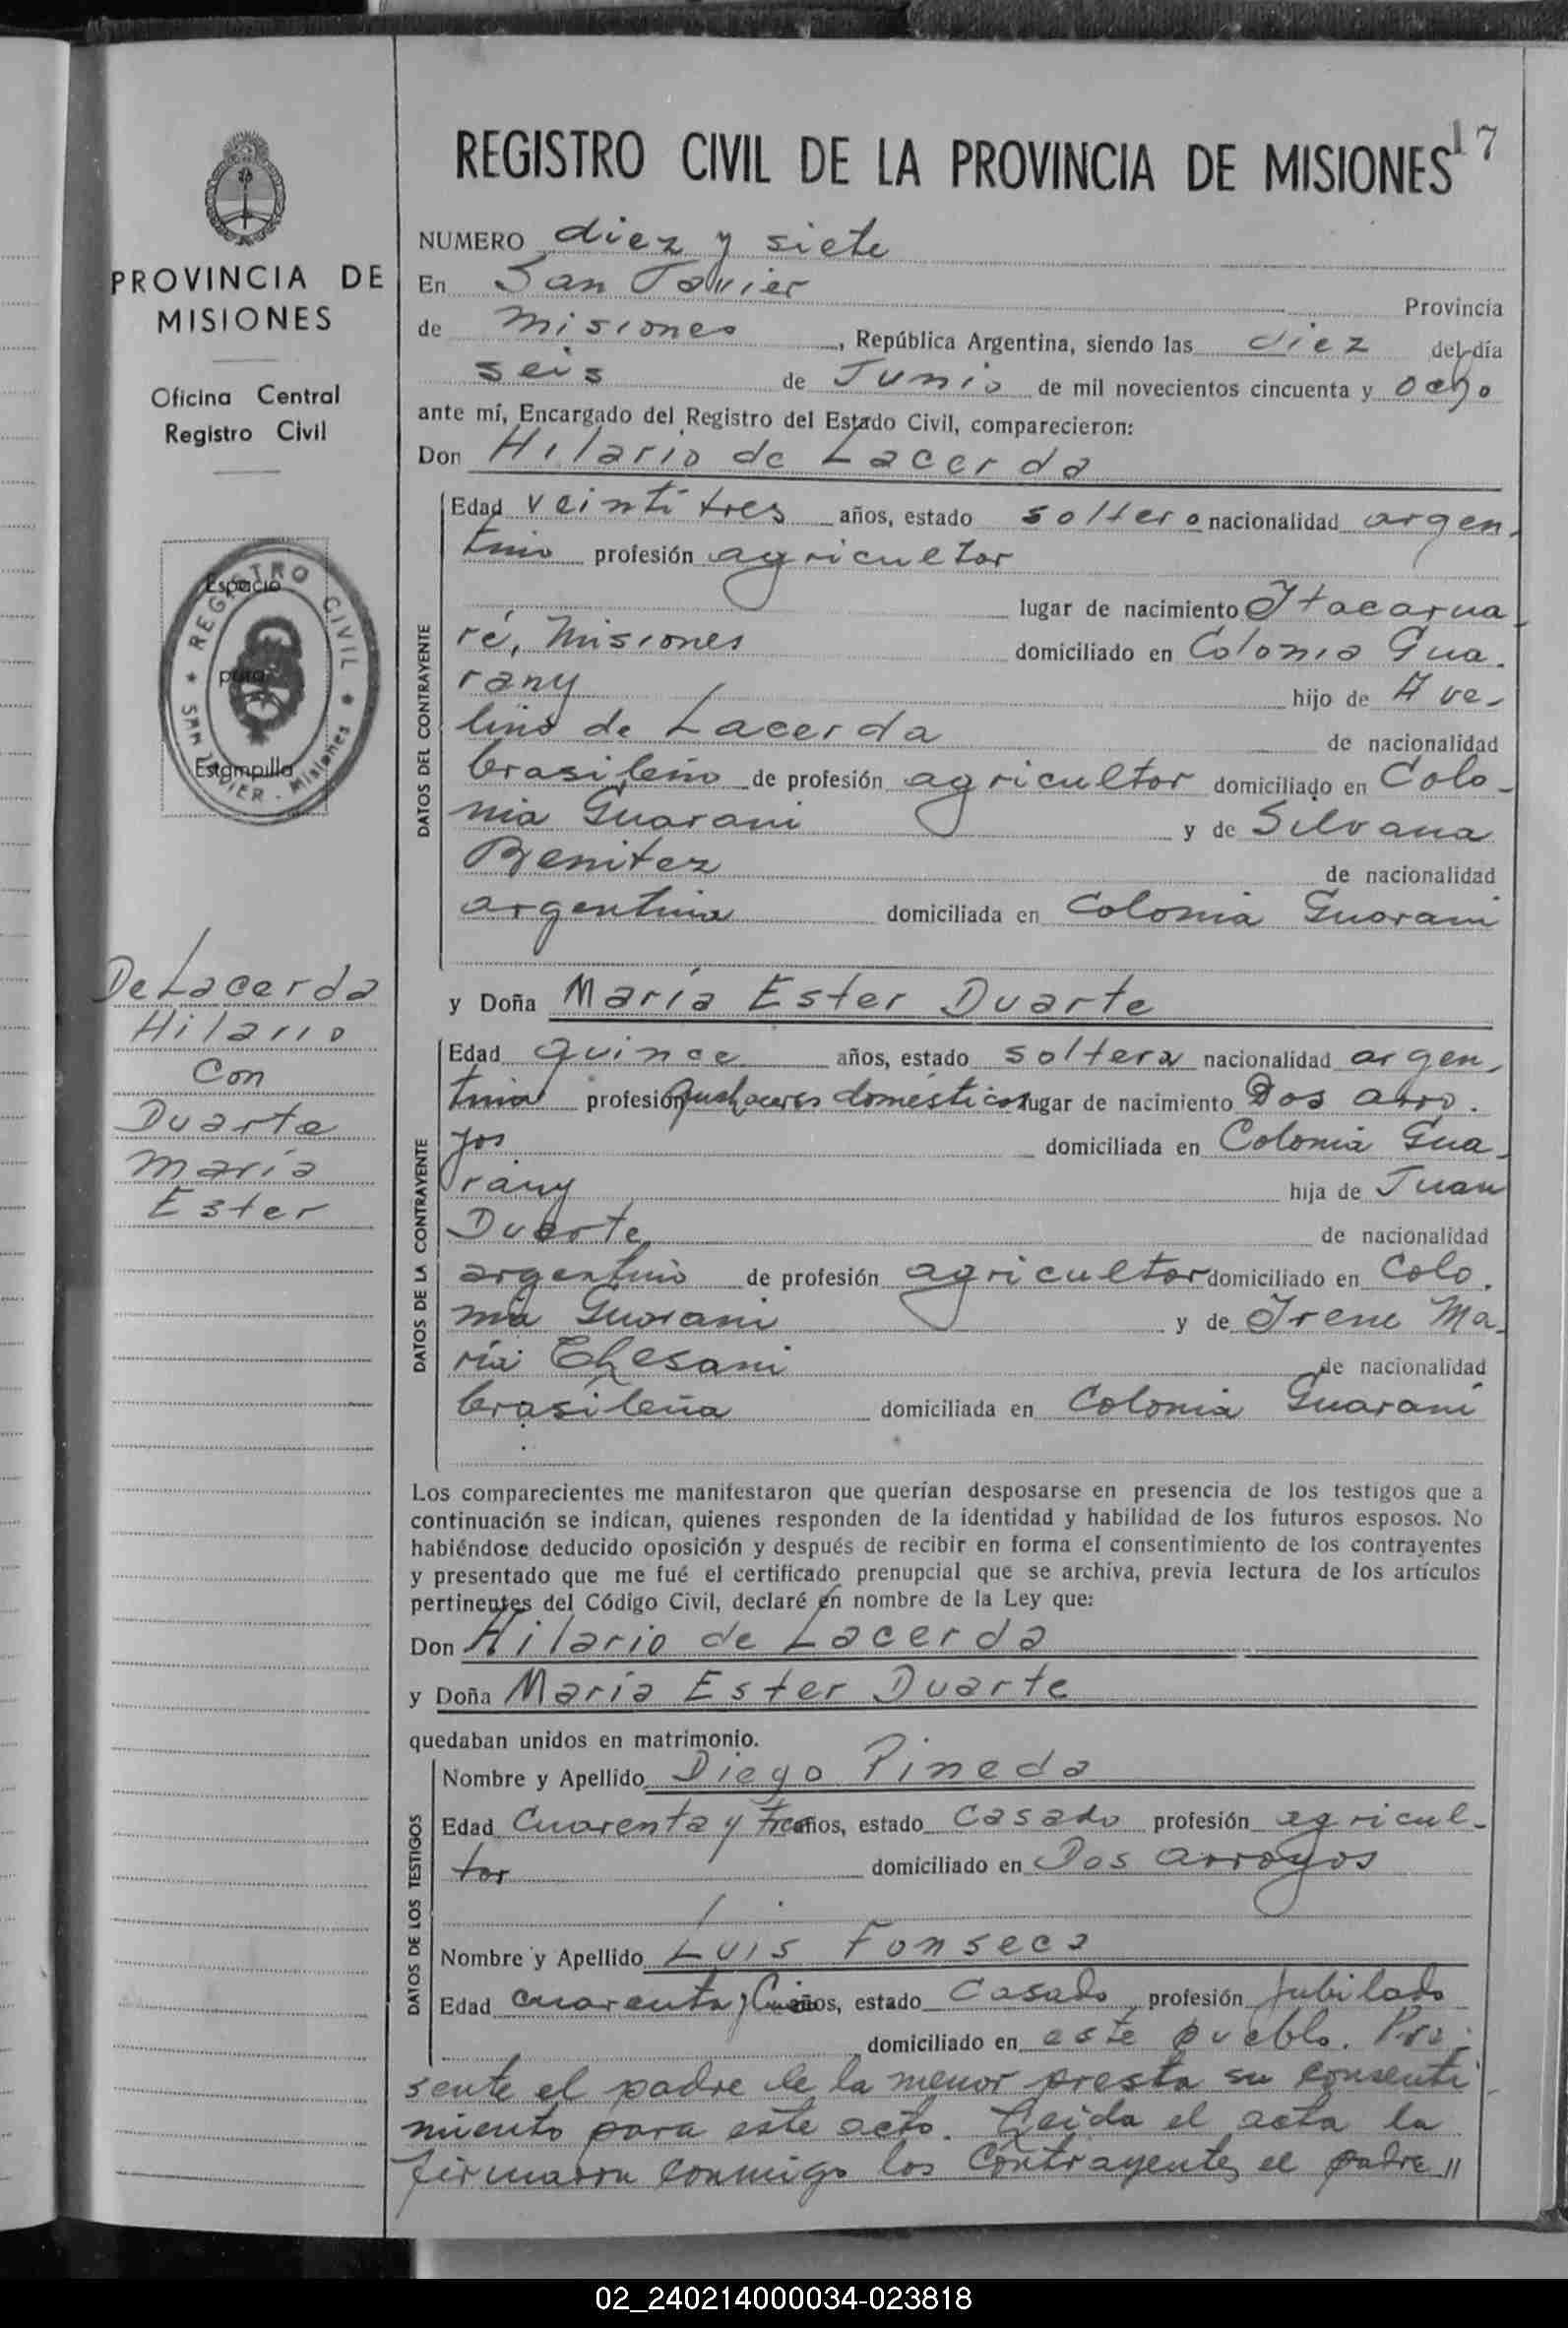 17
REGISTRO CIVIL DE LA PROVINCIA DE MISIONES
NUMERO diez y siete
En San Javier Provincia
de Misiones, República Argentina, siendo las diez del día
seis de Junio de mil novecientos cincuenta y ocho
ante mí, Encargado del Registro del Estado Civil, comparecieron:
Don Hilario de Lacerda
DATOS DEL CONTRAYENTE
Edad veinti tres años, estado soltero nacionalidad argen-
tino profesión agricultor
lugar de nacimiento Itacarua-
ré, Misiones domiciliado en Colonia Gua-
rany hijo de Ave-
lino de Lacerda de nacionalidad
brasileño de profesión agricultor domiciliado en Colo-
nia Guarani y de Silvana
Benitez de nacionalidad
argentina domiciliada en Colonia Guarani
y Doña María Ester Duarte
DATOS DE LA CONTRAYENTE
Edad quince años, estado soltera nacionalidad argen-
tina profesión quehaceres domésticos lugar de nacimiento Dos arro-
yos domiciliada en Colonia Gua-
rany hija de Juan
Duarte de nacionalidad
argentino de profesión agricultor domiciliado en Colo-
nia Guarani y de Irene Ma-
ría Chesani de nacionalidad
brasileña domiciliada en Colonia Guarani
Los comparecientes me manifestaron que querían desposarse en presencia de los testigos que a
continuación se indican, quienes responden de la identidad y habilidad de los futuros esposos. No
habiéndose deducido oposición y después de recibir en forma el consentimiento de los contrayentes
y presentado que me fué el certificado prenupcial que se archiva, previa lectura de los artículos
pertinentes del Código Civil, declaré en nombre de la Ley que:
Don Hilario de Lacerda
y Doña María Ester Duarte
quedaban unidos en matrimonio.
DATOS DE LOS TESTIGOS
Nombre y Apellido Diego Pineda
Edad Cuarenta y tres años, estado Casado profesión agricul-
tor domiciliado en Dos arroyos
Nombre y Apellido Luis Fonseca
Edad cuarenta y años, estado Casado profesión Jubilado
domiciliado en este pueblo. Pre-
sente el padre de la menor presta su consenti-
miento para este acto. Leida el acta la
firmaron conmigo los Contrayentes el padre //
PROVINCIA DE
MISIONES
Oficina Central
Registro Civil
Espacio
para
Estampilla
REGISTRO CIVIL
SAN JAVIER - Misiones
De Lacerda
Hilario
Con
Duarte
María
Ester
02_240214000034-023818